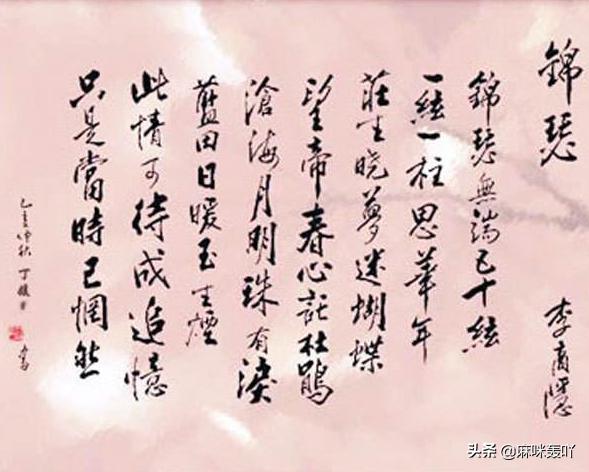 錦瑟
李商隱
錦瑟無端五十絃
一絃一柱思華年
莊生晓夢迷蝴蝶
望帝春心託杜鵑
滄海月明珠有淚
藍田日暖玉生煙
此情可待成追憶
只是當時已惘然
仲秋 丁 書
头条 @麻咪轰吖